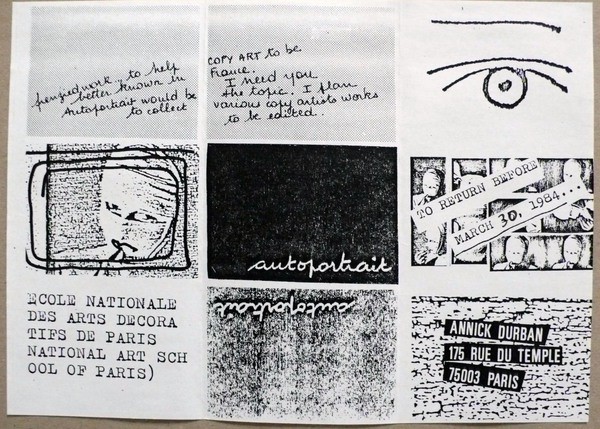 penziedwork.. to help
better known in
Autoportrait would be
to collect
COPY ART to be
France.
I need you
the topic. I plan
various copy artists works
to be edited..
TO RETURN BEFORE
MARCH 30, 1984...
autoportrait
autoportrait
ECOLE NATIONALE
DES ARTS DECORA
TIFS DE PARIS
NATIONAL ART SCH
OOL OF PARIS)
ANNICK DURBAN
175 RUE DU TEMPLE
75003 PARIS